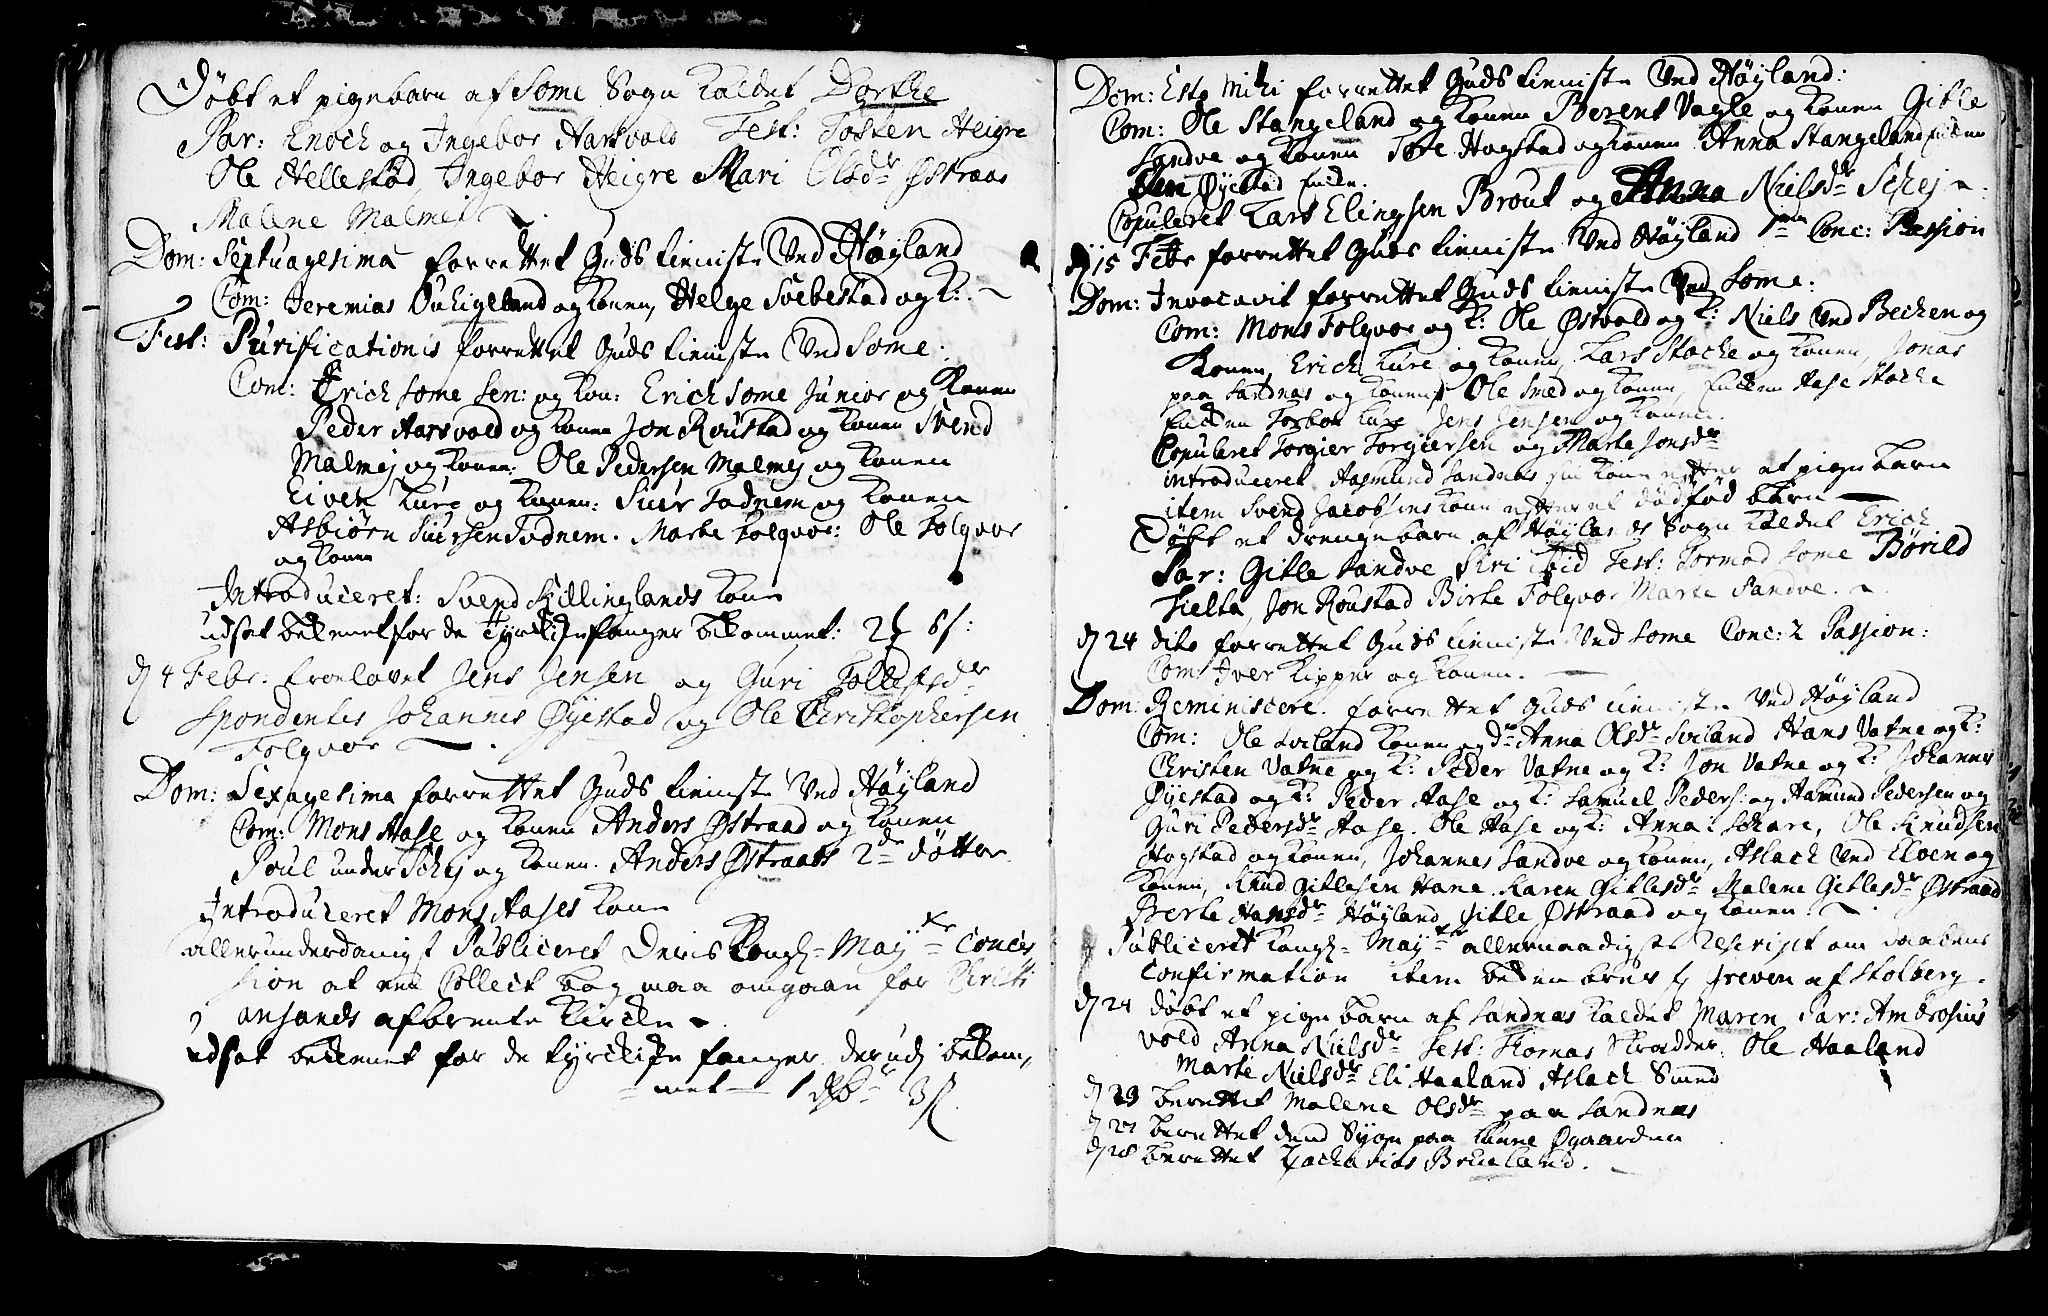 Döbt et pigebarn af Some Sogn kaldet Dorthe
Par: Enoch og Ingebor Harsvold Test: Tosten Heigre
Ole Hellestød, Ingebor Heigre Mari Olsdr Østraae
Malene Malmei
Dom: Septuagesima forrettet Guds tieniste Ved Høyland
Com: Jeremias og konen, Helge Soebestad og K:
Fest: Purificationis forrettet Guds tieniste Ved Some:
Com: Erich Some Sen: og kon: Erich Some Junior og konen
Peder Harsvold og konen Jon Roustad og konen Svend
Malmej og konen: Ole Pedersen Malmej og konen
Eiven Lure og konen: Siur Todnem og konen
Asbiørn Siursen Todnem. Marte Folqvor: Ole Folqvor
og konen
Introduceret: Svend Skillinglands kone
udsat bekenet for de tyrckiske fanger bekommet: 2 6 s:
d 4 Febr. troelovet Jens Jensen og Guri Tollefsdr
Spondentes Johannes Øyestad og Ole Christophersen
Folqvor
Dom: Sexagesima forrettet Guds tieniste Ved Høyland
Com: Mons Aase og konen Anders Østraad og konen
Poul under Schej og konen. Anders Østraads 2de døttre
Introduceret Mons Aases kone
allerunderdanigst Publiceret Deris Kongl- May-ts Conces
sion at en Collect bog maa omgaae for Christi
ansands afbrente Kircke
udsat beckenet for de tyrckiske fanger derudj bekom,
=met= 1 3 s.
Dom: Esto Mihi forrettet Guds tieniste Ved Høyland:
Com: Ole Stangeland og konen Berent Vagle og konen Gitle
Sandve og konen Tore Hogstad og konen Anna Stangeland Encken
Øyestad Encke.
Copuleret Lars Elingsen Brout og Anna Nielsdr Schej
d 15 Febr forrettet Guds tieniste Ved Høyland 1me Conc: Passion
Dom: Invocavit forrettet Guds tieniste Ved Some:
Com: Mons Folqvor og K: Ole Østvold og K: Niels Ved Becken og
konen, Erich Lure og konen, Lars Stocke og konen, Jonas
paa Sandnes og konen, Ole Smed og konen, Encken Aase Stocke
Encken Torbor Lure Jens Jensen og konen
Copuleret Torgier Torgiersen og Marte Jonsdr
introduceret Aasmund Sandnes sin kone efter et pigebarn
item Svend Jacobsens kone efter et dødfød barn
Døbt et drengebarn af Høylands Sogn kaldet Erich
Par: Gitle Sandve Siri ibid Test: Tormod Some Børild
Hielta, Jon Roustad Birte Folqvor Marte Sandve.
d 24 dito forrettet Guds tieniste Ved Some Conc: 2 Passion:
Com: Iver Kipper og konen.
Dom: Reminiscere. forrettet Guds tieniste Ved Høyland
Com: Ole Sviland konen og dr Anna Olsdr Sviland Hans Vatne og K:
Christen Vatne og K: Peder Vatne og K: Jon Vatne og K: Johannes
Øyestad og K: Peder Aase og K: Samuel Peders: og Aamund Pedersen og
Guri Pedersdr Aase. Ole Aase og K: Anna Schare, Ole Knudsen
Hogstad og konen, Johannes Sandve og konen, Aslach Ved Eloen og
konen, Knud Gitlesen Hane. Karen Gitlesdr Malene Gitlesdr Østraad
Berte Hansdr Høyland, Gitle Østraad og konen.
Publiceret Kongl- May-ts allernaadigste Rescript om daabens
Confirmation item af Stolberg.
d 24 døbt et pigebarn af Sandnes kaldet Maren Par: Ambrosius
vold Anna Nielsdr Test: Thomas Skrædder, Ole Haaland
Marte Nielsdr Eli Haaland Aslach Smed
d 23 berettet Malene Olsdr paa Sandnes
d 27 berettet dend Syge paa Lunne Øgaarden
d 28 berettet Zacharias Brueland.